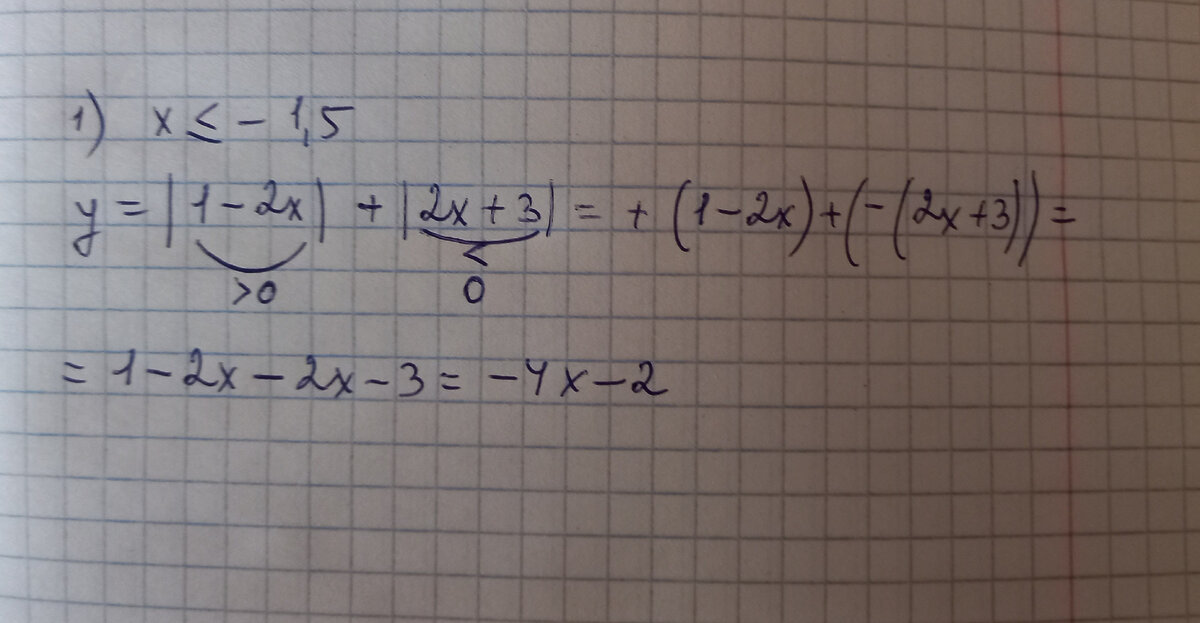 1) x ≤ - 1,5
y = |1 - 2x| + |2x + 3| = + (1 - 2x) + (-(2x + 3)) =
>0 < 0
= 1 - 2x - 2x - 3 = -4x - 2